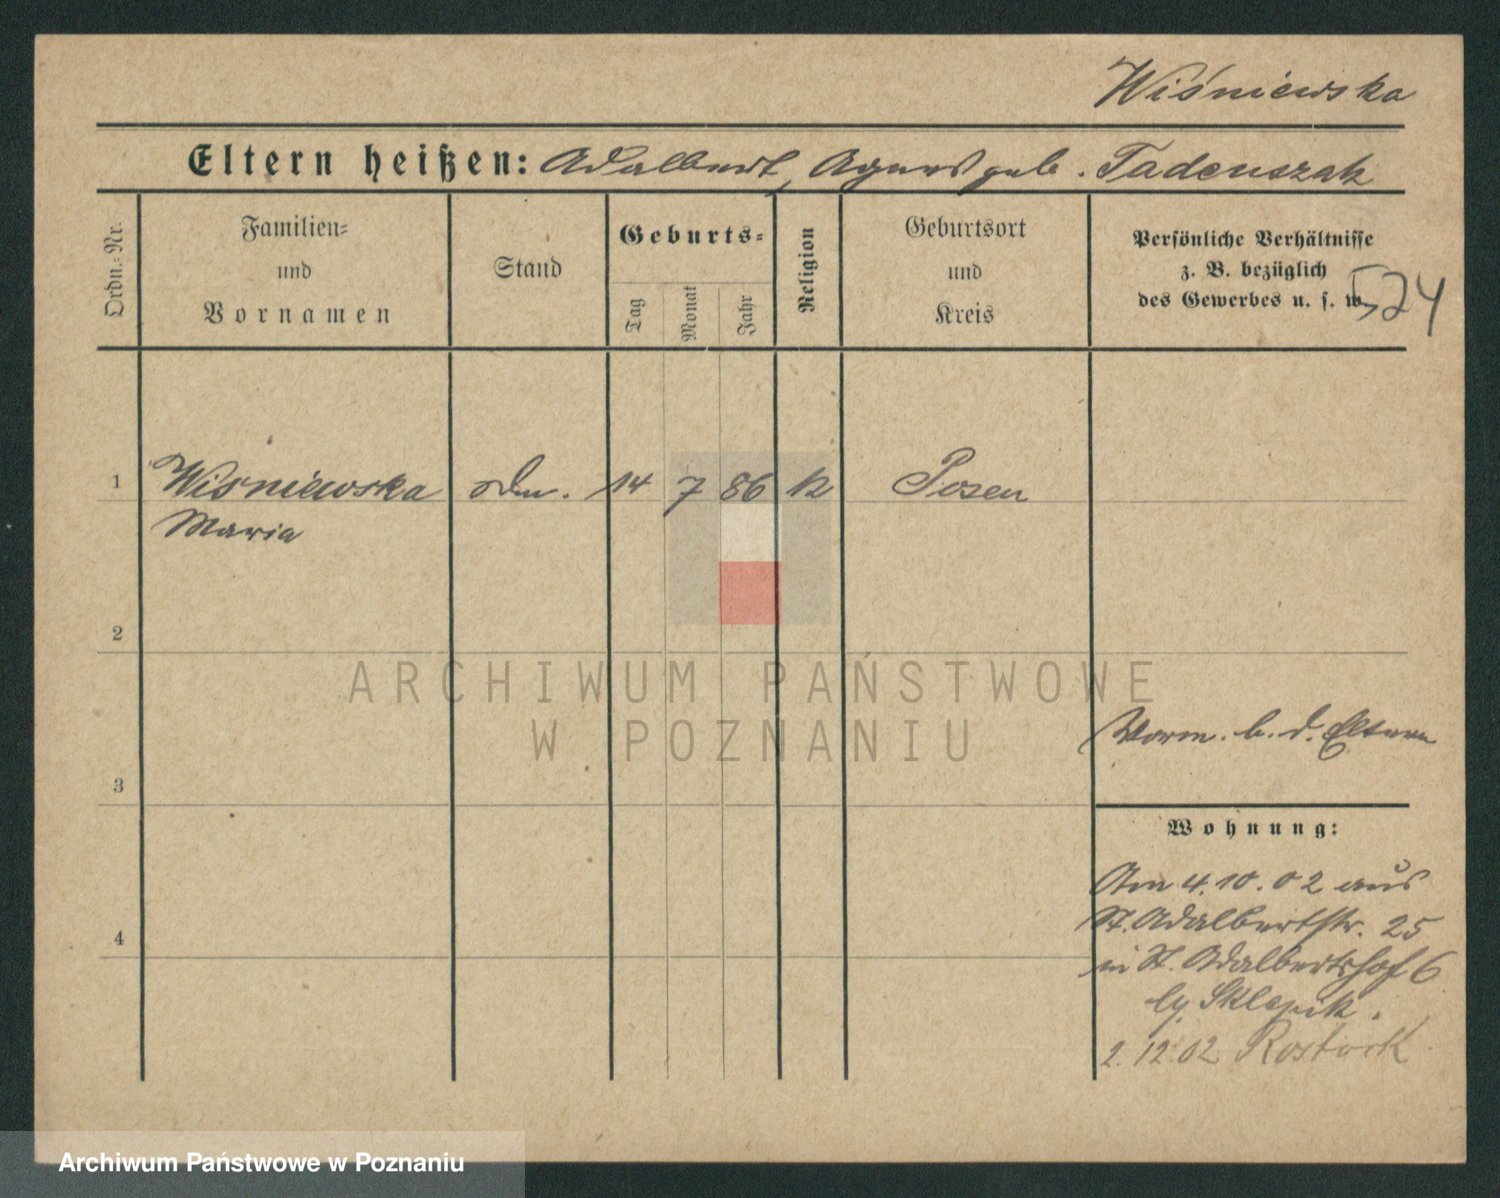 Wiśniewska
Eltern heißen: Adalbert, Agnes geb. Tadeuszak
Ordn.-Nr.
Familien-
und
Vornamen
Stand
Geburts-
Tag
Monat
Jahr
Religion
Geburtsort
und
Kreis
Persönliche Verhältnisse
z. B. bezüglich
des Gewerbes u. s. w.
1 Wiśniewska 14 7 86 k Posen
Maria
2
ARCHIWUM PAŃSTWOWE
W POZNANIU
Vorm. b. d. Eltern
3
Wohnung:
Am 4.10.02 aus
St. Adalbertstr. 25
4
in St. Adalbertshof 6
2.12.02 Rostock
Archiwum Państwowe w Poznaniu